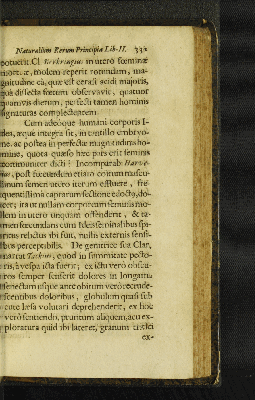 Naturalium Rerum Principia Lib. II. 331
potuerit. Cl. Kerkringius in utero fœminæ
mortuæ, molem reperit rotundam, ma-
gnitudine eâ, quæ est cerasi acidi majoris,
quâ dissecta fœtum observavit, quatuor
quamvis dierum, perfecti tamen hominis
signaturas complectentem.
Cum adeoque humani corporis I-
dea, æque integra sit, in tantillo embryo-
ne, ac postea in perfectæ magnitudinis ho-
mine, quota quæso hæc pars erit seminis
communiter dicti? Incomparab.
post fœcundum etiam coitum mascu-
linum semen utero iterum effluere, fre-
quentissimâ caprarum sectione edoctus, do-
cet; ita ut nullam corpoream seminis mo-
lem in utero unquam offenderit, & ta-
men fœcundans cum Ideis seminalibus spi-
ritus relictus ibi fuit, nullis externis sensi-
bus perceptibilis. De genitrice sua Clar,
narrat Tackius, quod in summitate pecto-
ris, à vespa icta fuerit; ex ictu verò obscu-
ros semper senserit dolores in longam
senectam usque ante obitum verò recrude-
scentibus doloribus, globulum quasi sub
cute læsa volutari deprehenderit, ex hinc
verò sentiendo, pruntum aliquem, acu ex-
ploratura quid ibi lateret, granum tritici
ex-